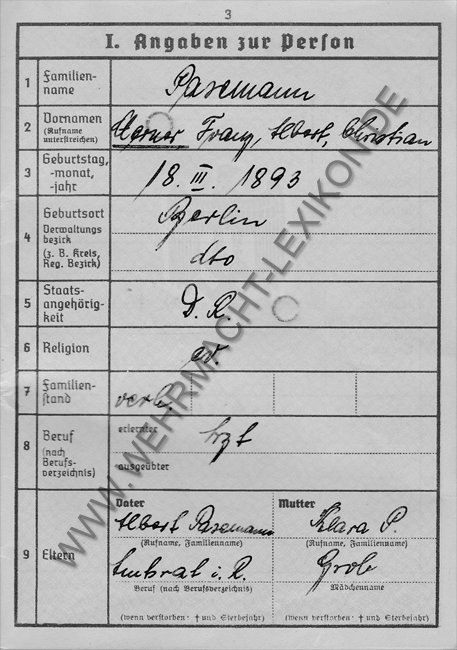 3
I. Angaben zur Person
1 Familien-
name
Pasemann
2 Vornamen
(Rufname
unterstreichen)
Werner Franz, Albert, Christian
3 Geburtstag,
-monat,
-jahr
18. III. 1893
4 Geburtsort
Verwaltungs
bezirk
(z. B. Kreis,
Reg. Bezirk)
Berlin
dto
5 Staats-
angehörig-
keit
D. R.
6 Religion
ev.
7 Familien-
stand
verh.
8 Beruf
(nach
Berufs-
verzeichnis)
erlernter
Arzt
ausgeübter
9 Eltern
Vater
Albert Pasemann
(Rufname, Familienname)
Amtsrat i. R.
Beruf (nach Berufsverzeichnis)
(wenn verstorben · † und Sterbejahr)
Mutter
Klara P.
(Rufname, Familienname)
Mädchenname
(wenn verstorben: † und Sterbejahr)
WWW.WEHRMACHT-LEXIKON.DE